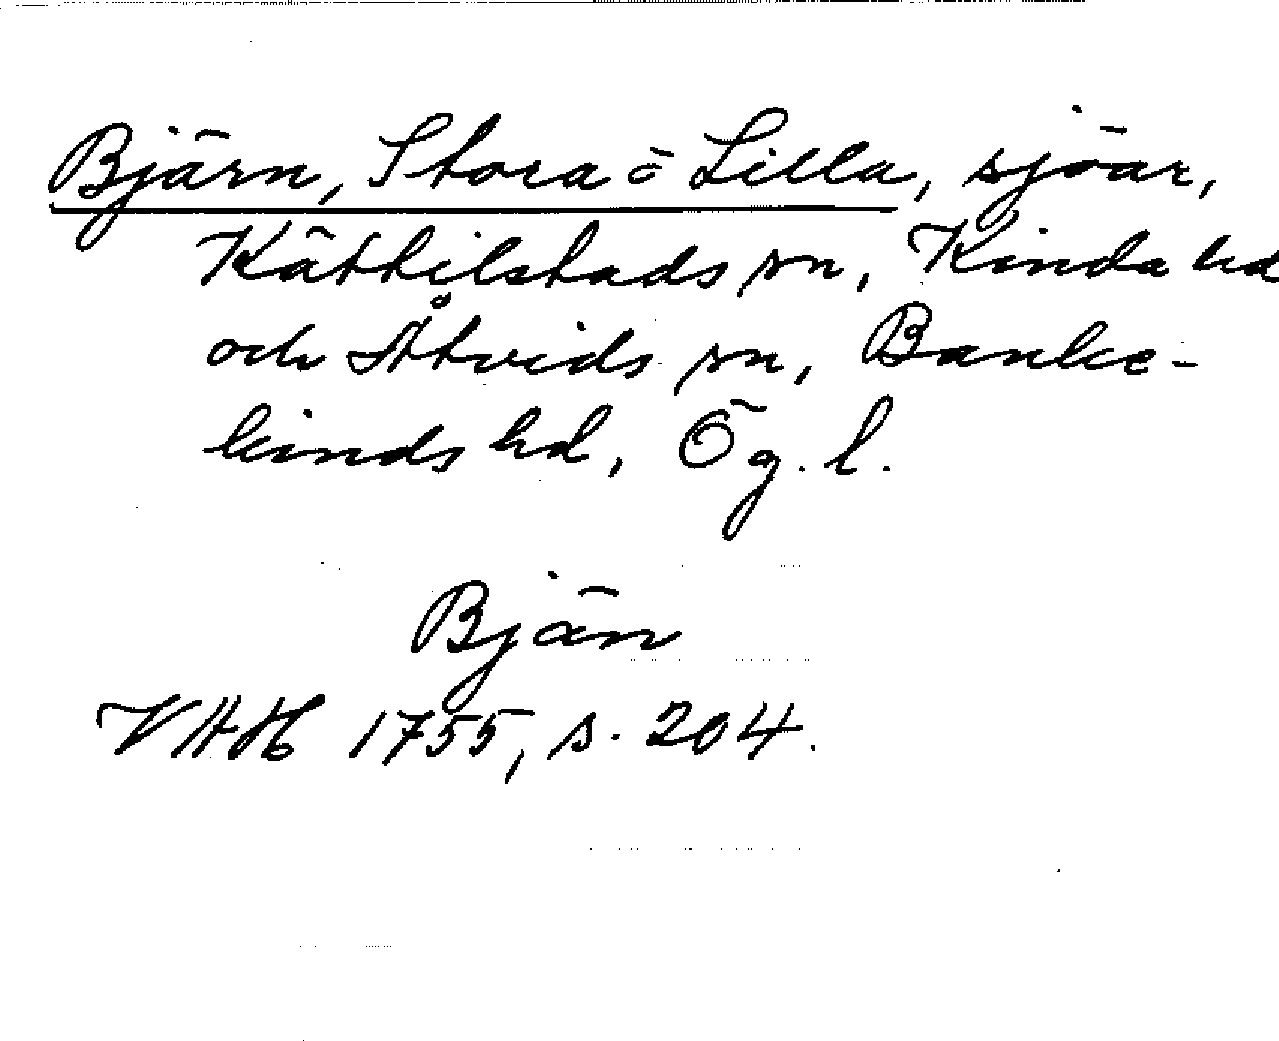 Bjärn, Stora o Lilla, sjöar,
Kättilstads sn, Kinda hd
och Åtvids sn, Banke-
kinds hd, Ög. l.
Bjän
VHH 1755, s. 204.